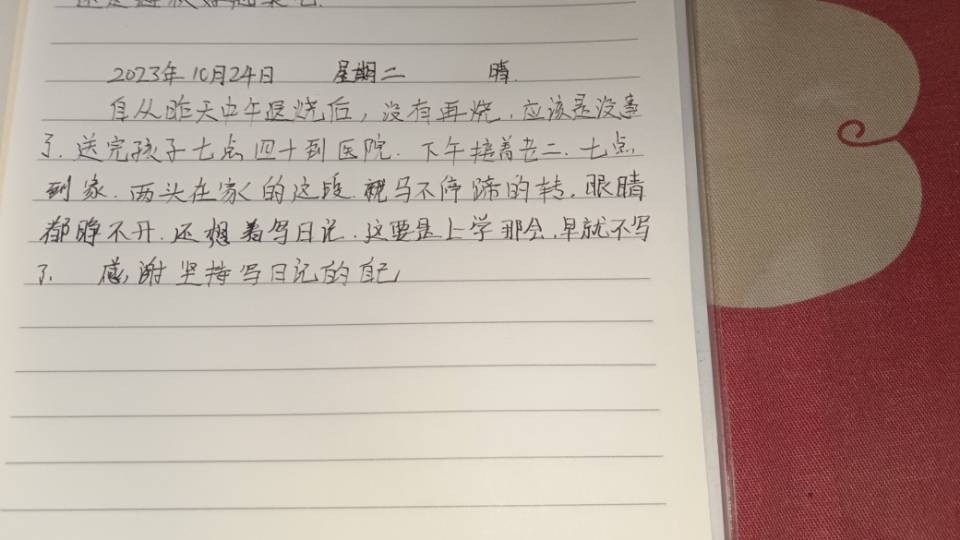 2023年10月24日 星期二 晴.
自从昨天中午退烧后，没有再烧.应该是没事
了.送完孩子七点四十到医院.下午接着老二.七点
到家.两头在家的这段.马不停蹄的转.眼睛
都睁不开.还想着写日记.这要是上学那会.早就不写
了. 感谢坚持写日记的自己